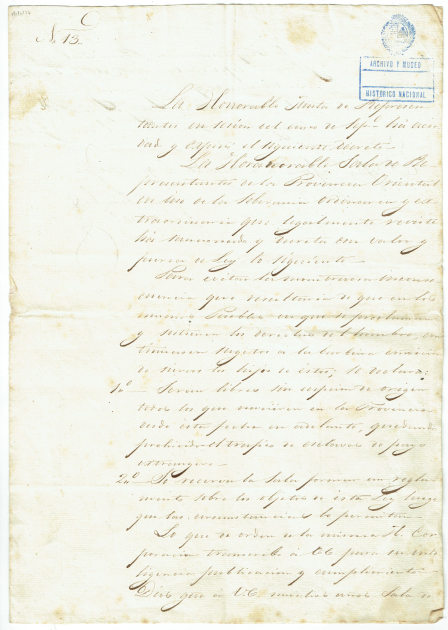 N. 13.
ARCHIVO Y MUSEO
HISTORICO NACIONAL
La Honorable Junta de Represen
tantes en sesion del cinco de Sepe. ha acor
dado y expedido el siguiente decreto.
La Honorable Sala de Re
presentantes de la Provincia Oriental
en uso de la Soberania ordinaria y ex
traordinaria que legalmente reviste
ha sancionado y decreta con valor y
fuerza de Ley lo siguiente.
Para evitar la monstruosa inconse
cuencia que resultaria de que en los
mismos Pueblos en que se proclaman
y sostienen los derechos del hombre, con
tinuasen sugetos a la barbara condicion
de siervos los hijos de estos, se declara:
1º Seran libres sin de origen
todos los que nacieren en la Provincia
desde esta fecha en adelante, quedando
prohibido el trafico de esclavos de pays
extrangero.
2º Se reserva la Sala formar un regla
mento sobre los objetos de esta Ley luego
que las circunstancias lo permitan.
Lo que de orden de la misma H. Cor
poracion transcribo á VE para su inte
ligencia publicacion y cumplimiento.
Dios gue á VE muchos años Sala de